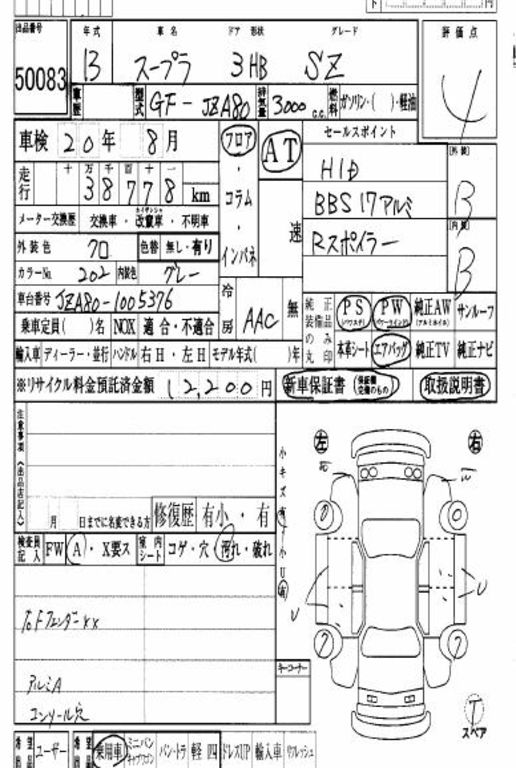 出品番号 年式 車名 ドア 形状 グレード 評価点
50083 13 スープラ 3HB SZ 4
車歴 型式 GF-JZA80 排気量 3000c.c. 燃料 ガソリン・( )・軽油
車検 20年 8月 フロア・コラム・インパネ AT 速 セールスポイント
走行 十 万 千 百 十 一
38778 km
HID [外装] B
BBS 17アルミ
メーター交換歴 交換車・改竄車・不明車
Rスポイラー [内装] B
外装色 クロ 色替 無し・有り
カラーNo. 202 内装色 グレー
車台番号 JZA80-1005376 冷房 AAC 無
純正装備品のみ丸印 PS (パワステ) PW (パワーウインド) 純正AW (アルミホイル) サンルーフ
乗車定員( )名 NOX 適合・不適合
輸入車 ディーラー・並行 ハンドル 右H・左H モデル年式( )年
本革シート エアバッグ 純正TV 純正ナビ
※リサイクル料金預託済金額 12,200円 新車保証書 (保証書交換のもの) 取扱説明書
注意事項(出品店記入)
月 日までに名変できる方 修復歴 有小・有
左 右
小キズ有 小U有
検査員記入 FW A・X要ス 室内シート コゲ・穴・汚れ・破れ
U U
右FフェンダーXX
アルミA
コンソール穴
キーコーナー
T
スペア
希望 ユーザー 希望 乗用車 ミニバン キャブワゴン バン・トラ 軽 四 ドレスUP 輸入車 リフレッシュ